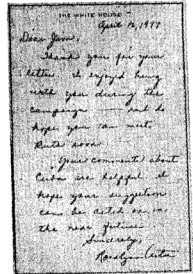 THE WHITE HOUSE
April 12, 1977
Dear Jim,
Thank you for your
letter. I enjoyed being
with you during the
campaign and do
hope you can meet
Ruth soon.
Your comments about
Cuba are helpful. I
hope your suggestion
can be acted on in
the near future.
Sincerely,
Rosalynn Carter